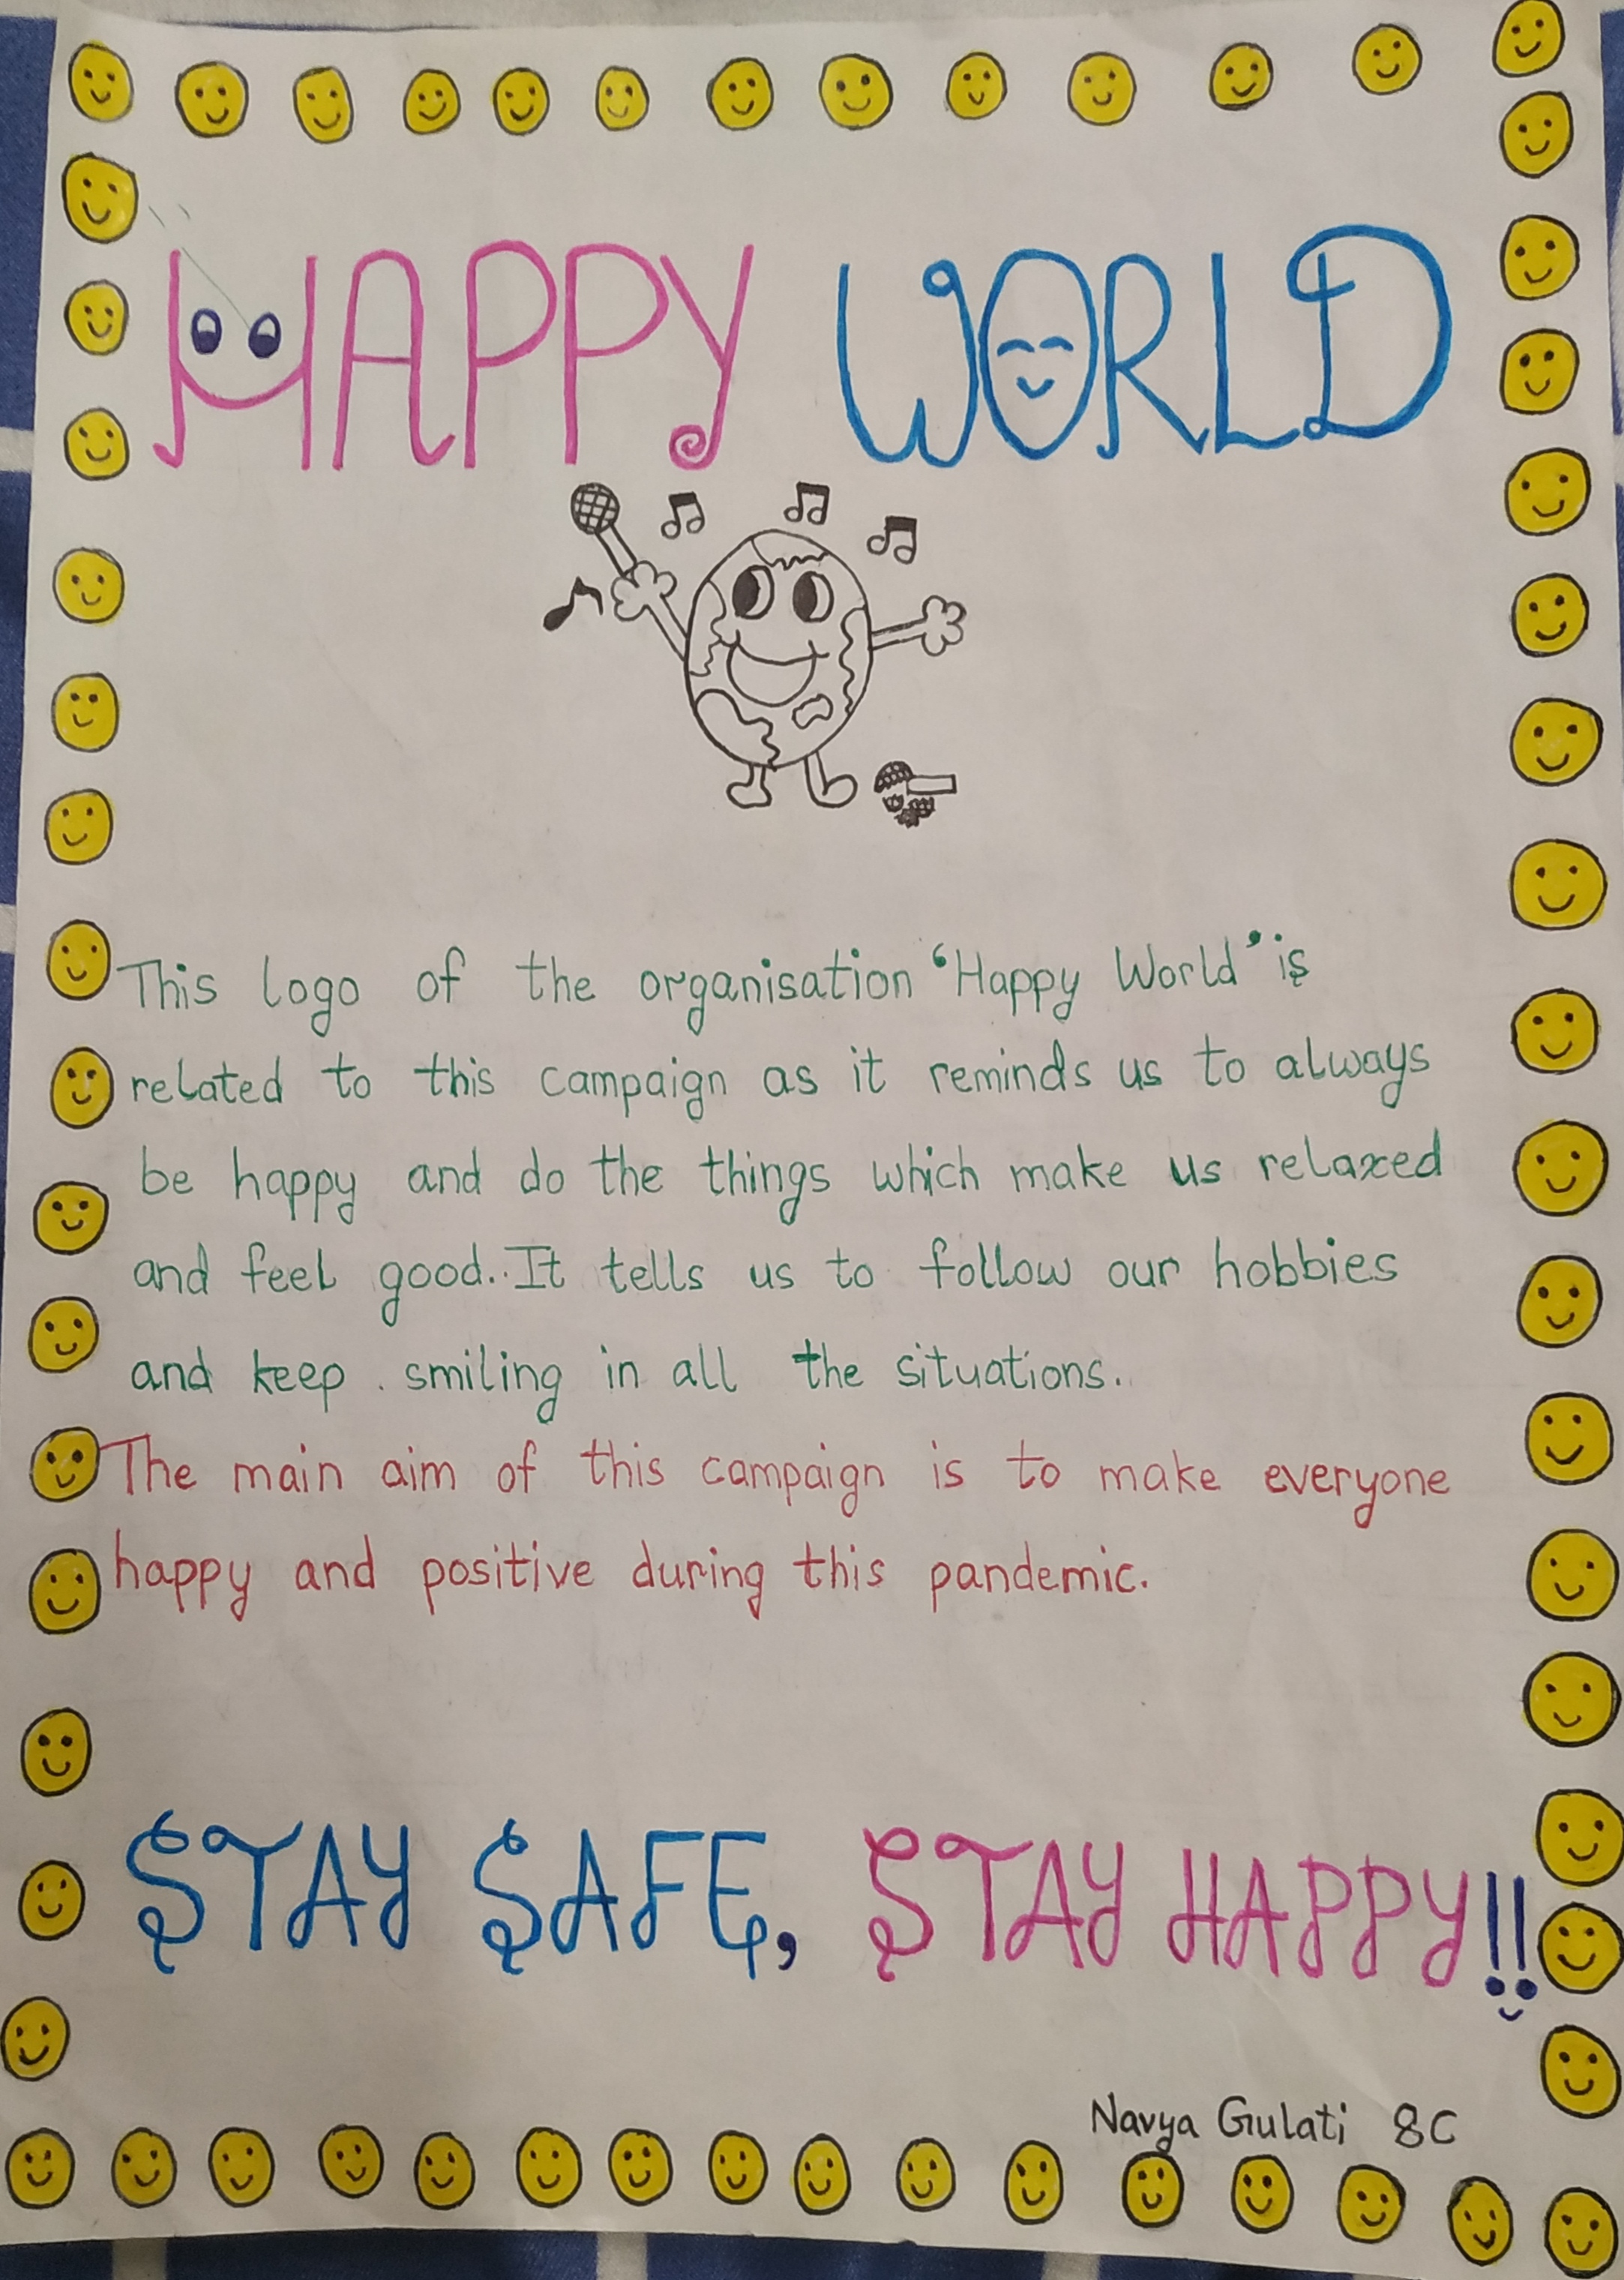 HAPPY WORLD
This logo of the organisation ‘Happy World’ is
related to this campaign as it reminds us to always
be happy and do the things which make us relaxed
and feel good. It tells us to follow our hobbies
and keep smiling in all the situations.
The main aim of this campaign is to make everyone
happy and positive during this pandemic.
STAY SAFE, STAY HAPPY!!
Navya Gulati 8C